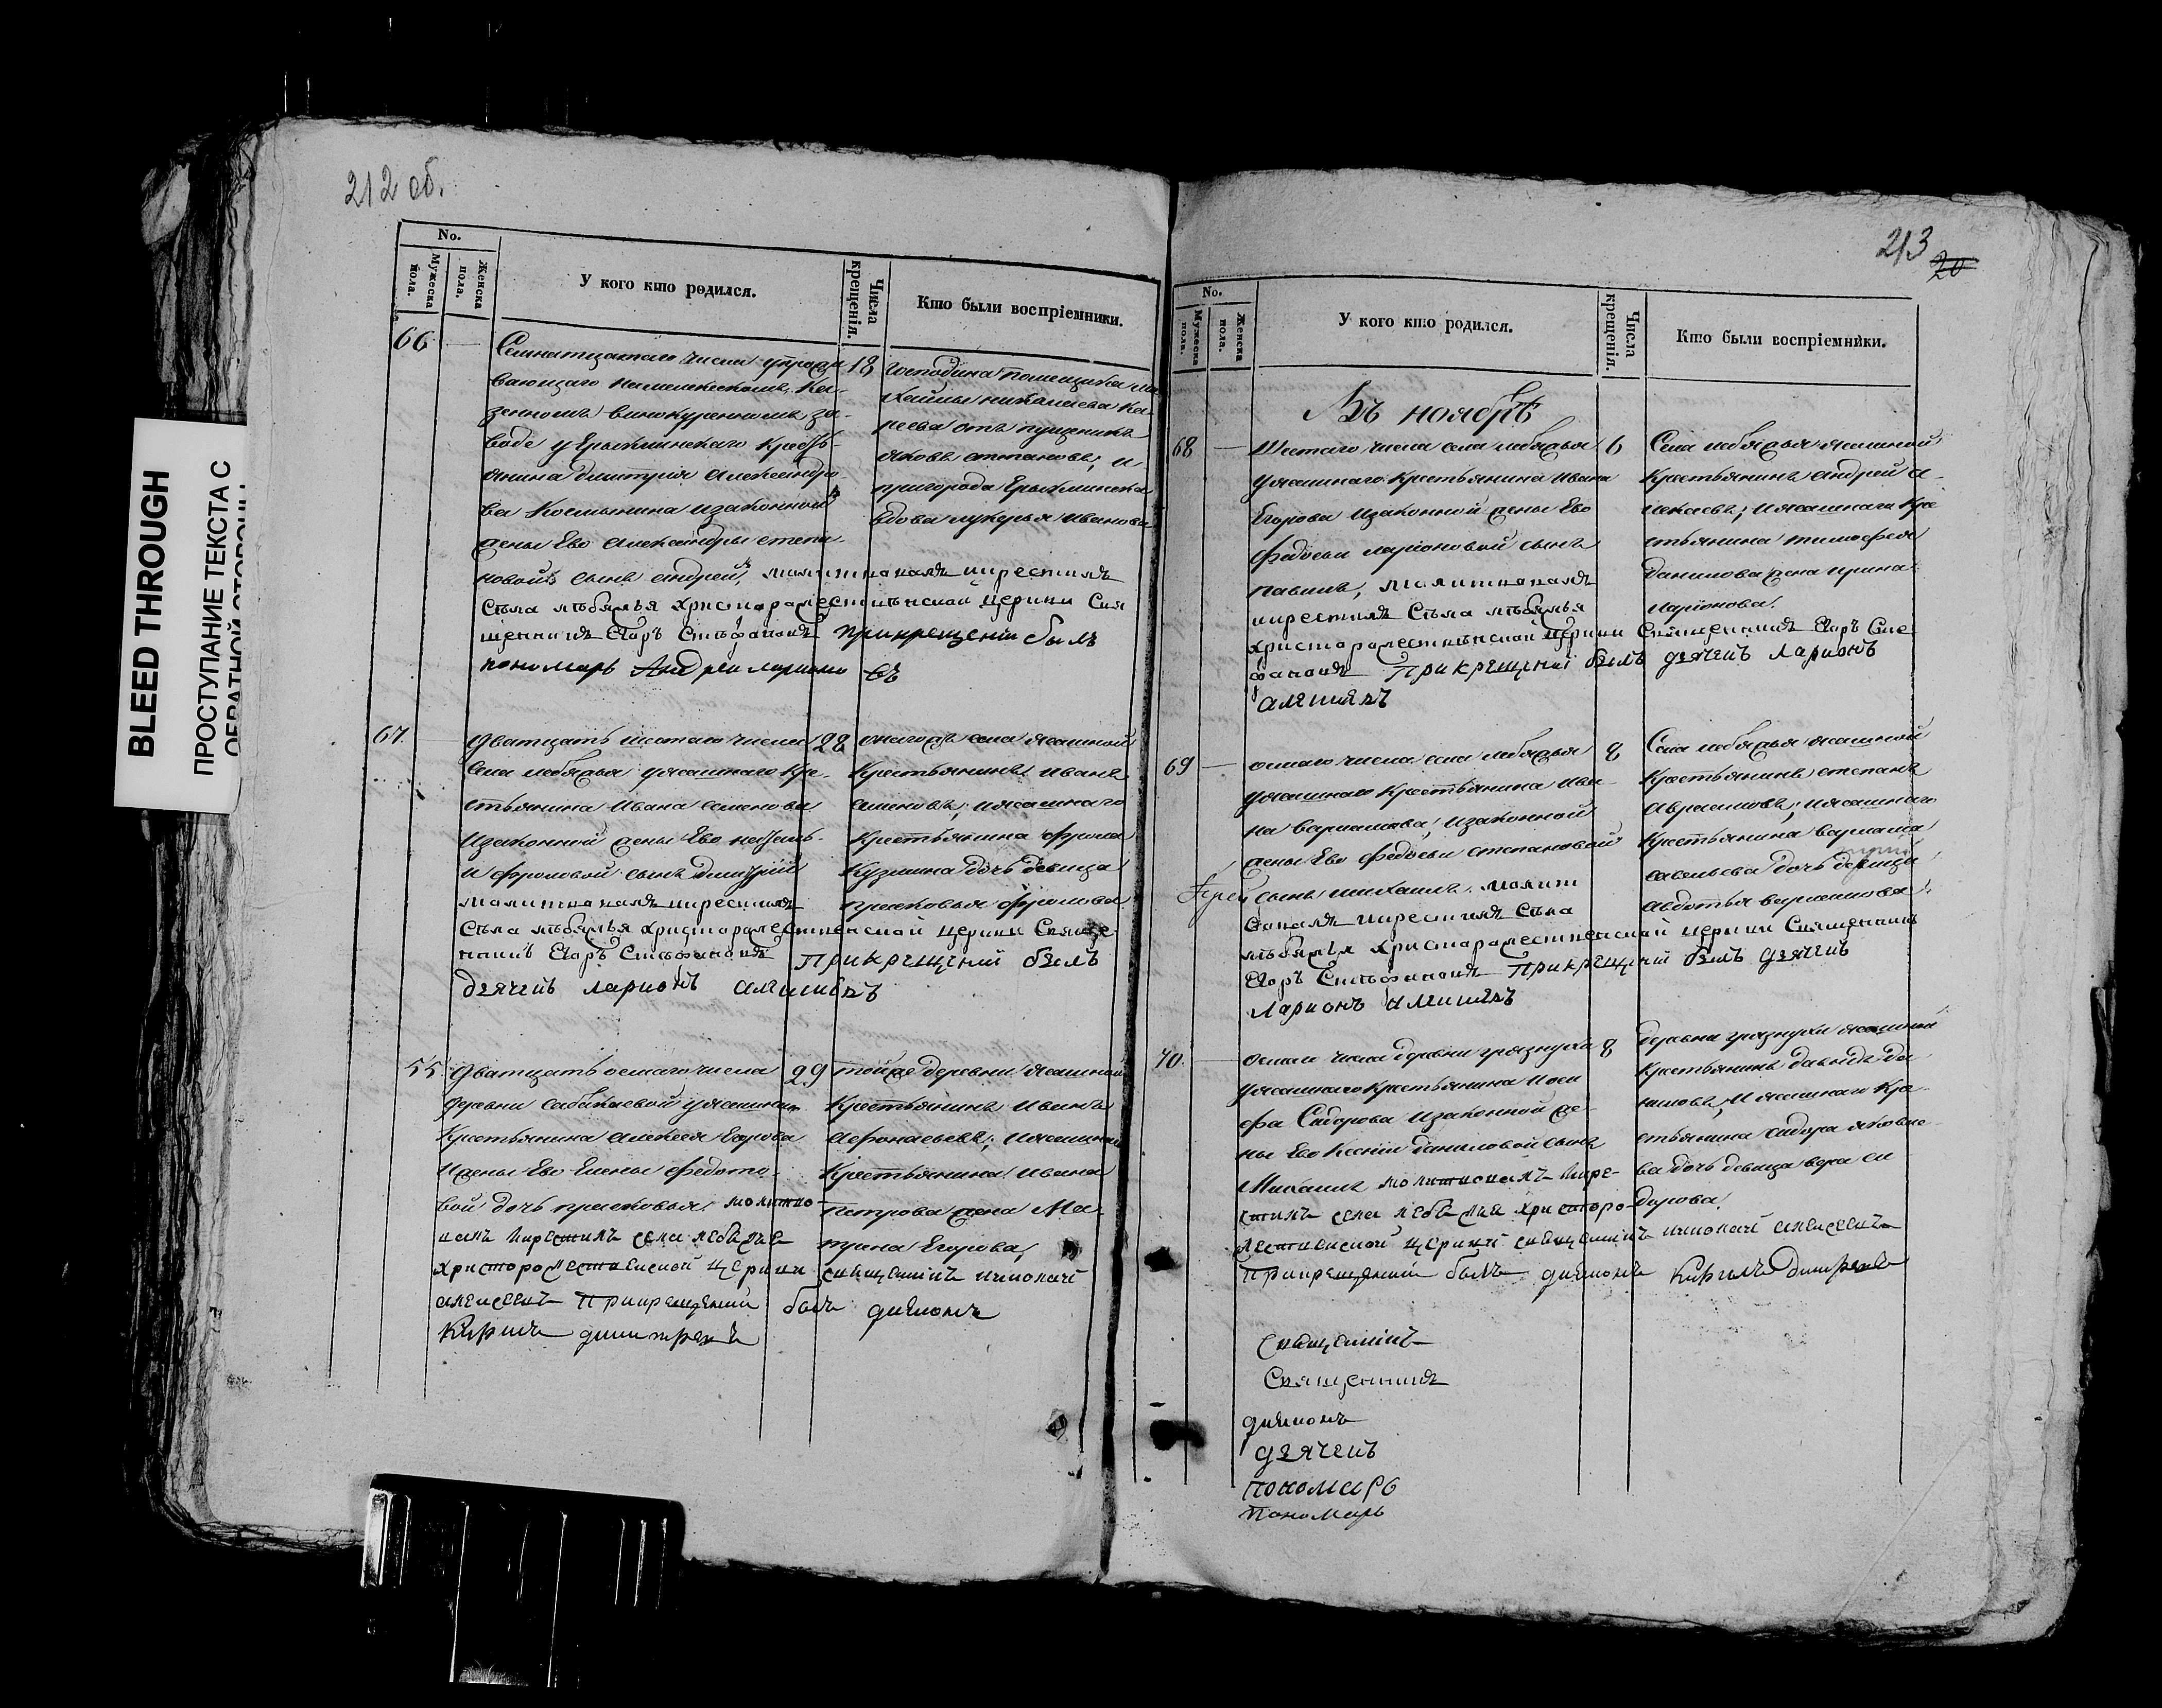 212 об.
No.
Мужеска пола.
Женска пола.
У кого кто родился.
Числа крещенія.
Кто были воспріемники.
66
Семнатцатаго числа упрожи
вающаго намелекескомъ Ка-
зенномъ винокуренномъ за-
воде уЕрыклинскаго Кресть-
янина димитрия Александро-
ва Космынина изаконной
жены Ево Александры степа-
новой сынъ андрей, молитвовалъ икрестилъ
Села лебяжья христорожественской церкви Свя
щенникъ Егоръ Стефановъ прикрещении былъ
пономарь Андреи ларионовъ
18
Господина помещика ми
хайлы николаева Ка-
реева отпущенникъ
яковъ степановъ, и
пригорода Ерыклинска
вдова лукерья иванова
67.
Дватцать шестаго числа
Села лебяжья уясашнаго кре-
стьянина ивана семенова
изаконной жены Ево
и фроловой сынъ димитрий
молитвовалъ икрестилъ
Села лебяжья христорожественской церкви Свяще
нникъ Егоръ Стефановъ Прикрещении былъ
дьячекъ ларионъ алексиевъ
28
оногожъ села ясашной
Крестьянинъ иванъ
семеновъ, иясашнаго
Крестьянина фрола
Кузмина дочь девица
прасковья фролова
55
Дватцать осмаго числа
деревни сабакаевой уясашнаго
Крестьянина алексея Егорова
ижены Ево Елены федото-
вой дочь прасковья, молитво-
валъ икрестилъ села лебяжье
христорожественской церкви священикъ николай
алексеевъ Прикрещении былъ диаконъ
Кирилъ димитреевъ
29
тойже деревни ясашной
Крестьянинъ иванъ
афонасьевъ, иясашнаго
Крестьянина ивана
петрова жена Ма-
трина Егорова,
213
20
No.
Мужеска пола.
Женска пола.
У кого кто родился.
Числа крещенія.
Кто были воспріемники.
Въ ноябрѣ
68
Шестаго числа села лебяжья
уясашнаго крестьянина ивана
Егорова изаконной жены Ево
федосьи ларионовой сынъ
павилъ, молитвовалъ
икрестилъ Села лебяжья
христорожественской церкви Священникъ Егоръ Сте
фановъ Прикрещении былъ дьячекъ ларионъ
алексиевъ
6
Села лебяжья ясашной
Крестьянинъ андрей а-
лексаевъ, иясашнаго кре
стьянина тимофея
данилова жена ирина
ларионова.
69
осмаго числа села лебяжья
уясашнаго крестьянина ива-
на варламова, изаконной
жены Ево федосьи степановой
сынъ михаилъ. молит
вовалъ икрестилъ Села
лебяжья христорожественской церкви Священникъ
Егоръ Стефановъ Прикрещении былъ дьячекъ
ларионъ алексиевъ
Іерей
8
Села лебяжья ясашной
Крестьянинъ степанъ
авраамовъ, иясашнаго
Крестьянина варлама
савельева дочь девица
авдотья варламова.
70.
осмаго числа деревни грязнухи
уясашнаго Крестьянина иоси
фа Сидорова изаконной же-
ны Ево Ксении даниловой сынъ
Михаилъ молитвовалъ икре-
стилъ села лебяжья христоро-
жественской церкви священикъ николай алексеевъ
Прикрещении былъ диаконъ Кирилъ димитреевъ
8
деревни грязнухи ясашной
Крестьянинъ давыдъ да
ниловъ, И ясашнаго Кре-
стьянина сидора яковле-
ва дочь девица вера си
дорова.
священикъ
Священникъ
диаконъ
дьячекъ
пономарь
пономарь
BLEED THROUGH
ПРОСТУПАНИЕ ТЕКСТА С
ОБРАТНОЙ СТОРОНЫ